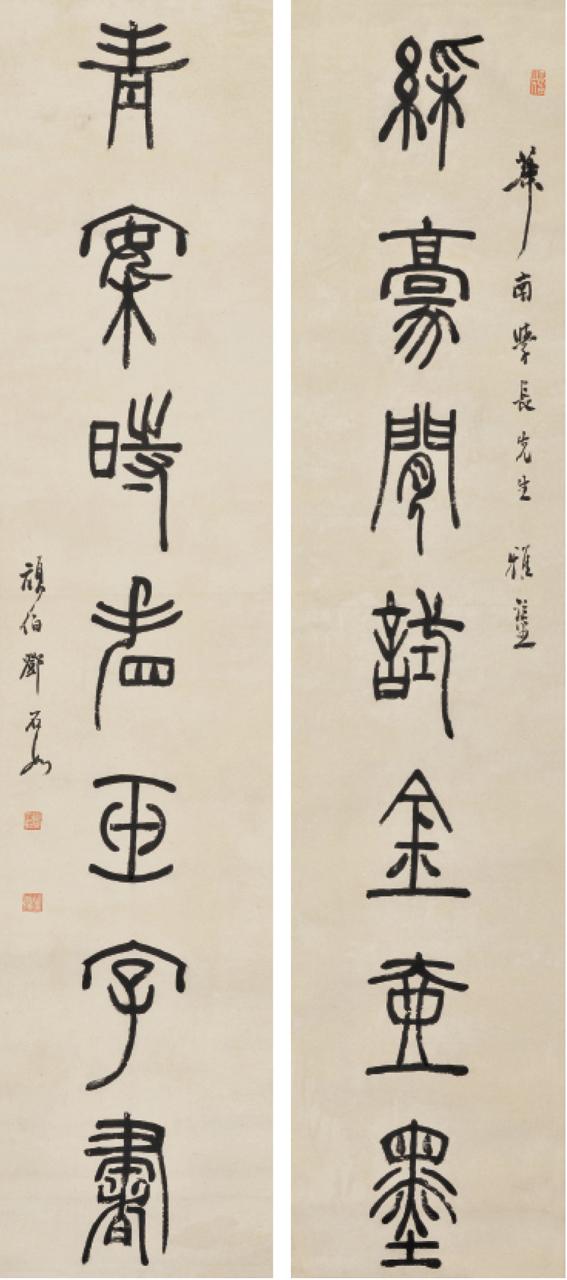 華南學長先生 雅鑒
綵豪閒試金壺墨
青案時看玉字書
頑伯鄧石如